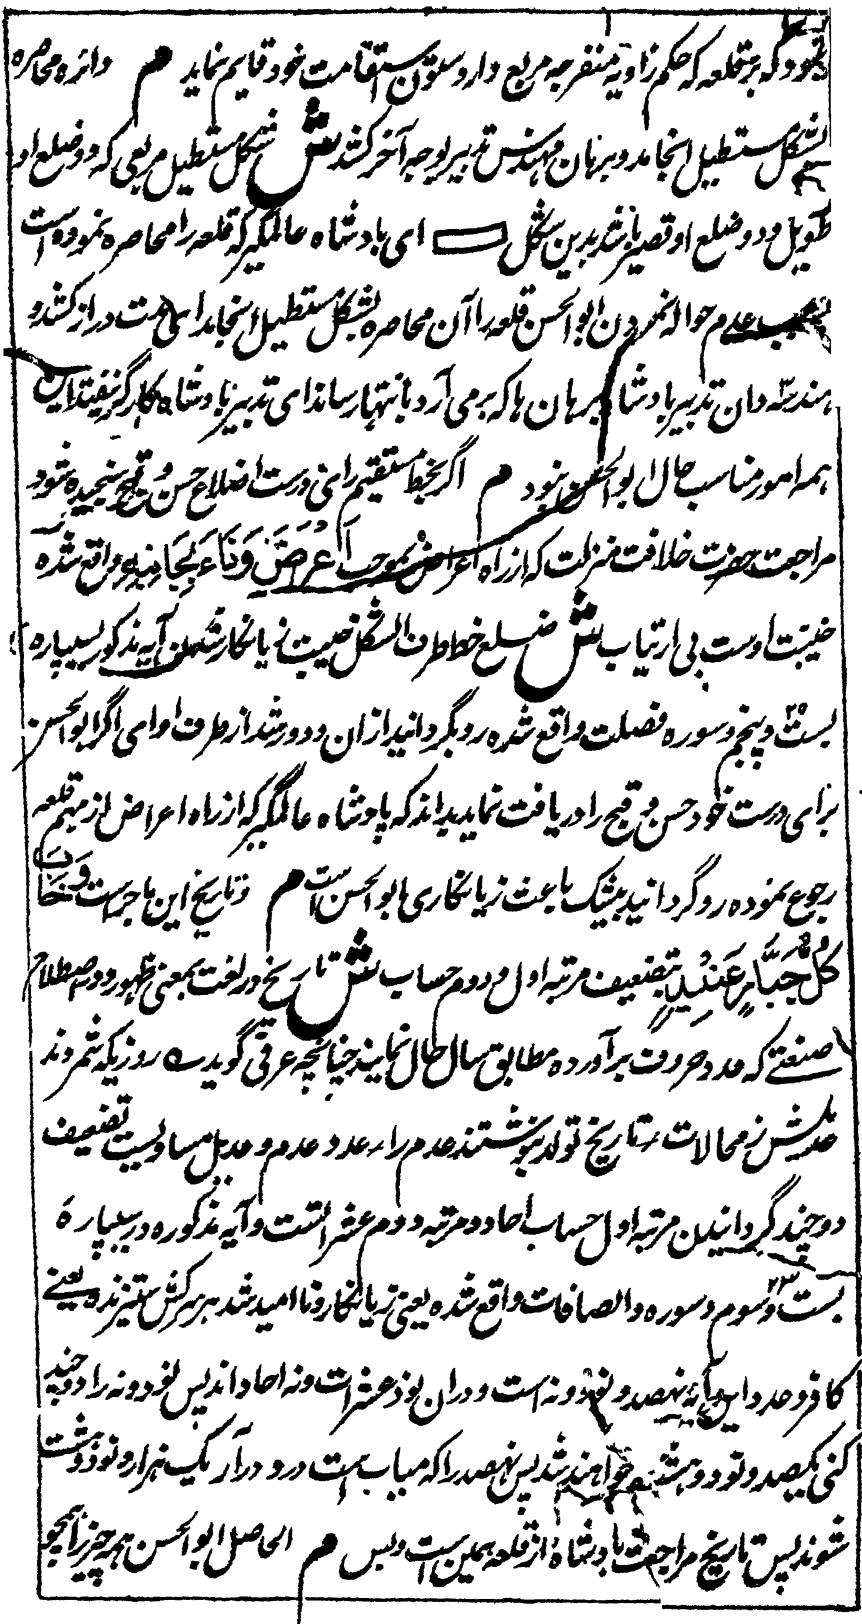 نجود که بر قلعه که حکم زاویه منفرجه مربع دارد ستون استقامت خود قایم نماید م دائره محاصره
بشکل مستطیل انجامد و برهان مهندس تدبیر بوجه آخر کشد ش شکل مستطیل مربعی که دو ضلع او
طویل و دو ضلع او قصیر باشد بدین شکل ای بادشاه عالمگیر که قلعه را محاصره نموده است
بسبب عدم حواله نمودن ابوالحسن قلعه را آن محاصره بشکل مستطیل انجامد ای مدت دراز کشد و
هندسه دان تدبیر بادشاه برهان ها که برمی آرد بانتها رساند ای تدبیر بادشاه کارگر نیفتد این
همه امور مناسب حال ابوالحسن نبود م اگر بخط مستقیم رای درست اضلاع حسن و قبح سنجیده شود
مراجعت حضرت خلافت منزلت که از راه اعراض بموجب اَعرَضَ وَنَاءَ بِجَانِبِهِ واقع شده
خیبت اوست بی ارتیاب ش ضلع خط طرف الشکل خیبت زیانکار شدن آیه مذکور بسیپاره
بست و پنجم و سوره فصلت واقع شده رو بگردانید ازان و دور شد از طرف او ای اگر ابوالحسن
برای درست خود حسن و قبح را دریافت نماید بداند که پادشاه عالمگیر که از راه اعراض از مهم قلعه
رجوع نموده رو گردانید بیشک باعث زیانکاری ابوالحسن است م و تاریخ این ماجراست وَخَابَ
كُلُّ جَبَّارٍ عَنِيدٍ بتضعیف مرتبه اول و دوم حساب ش تاریخ در لغت بمعنی ظهور و در اصطلاح
صنعتے که عدد حروف برآورده مطابق سال حال نمایند چنانچه عرفی گوید ه روزیکه شمردند
عدیلش ز محالات تاریخ تولد بنوشتند عدم را عدد عدم و عدیل مساویست تضعیف
دو چند گردانیدن مرتبه اول حساب احاد و مرتبه دوم عشرات است و آیه مذکوره در سیپارهٔ
بست و سوم و سوره والصافات واقع شده یعنی زیانکار و ناامید شد هر سرکش ستیزنده یعنے
کافر و عدد این آیه نهصد و نود و نه است و دران نود عشرات و نه احاد اند پس نود و نه را دو چند
کنی یکصد و نود و هشت خواهند شد پس نهصد را که میباب است درو درآر یک هزار و نود و هشت
شوند پس تاریخ مراجعت بادشاه از قلعه همین است و بس م الحاصل ابوالحسن همه چیز را همچو